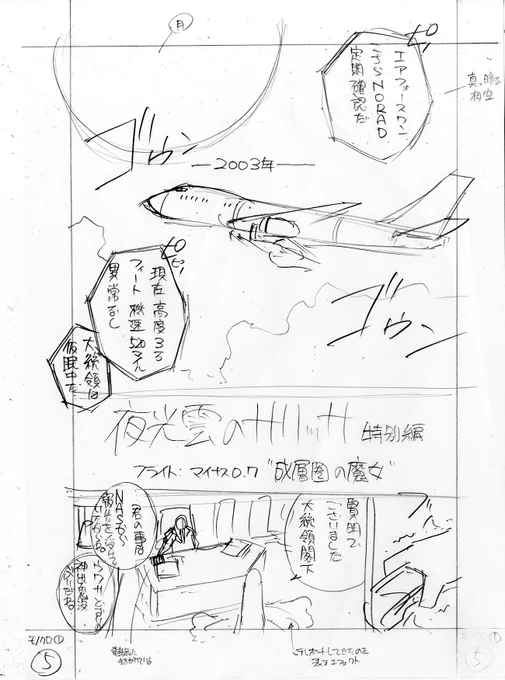 月
ピッ
エアフォースワン
こちらNORAD
定期確認だ
真っ暗な
夜空
ゴウン
―2003年―
ピピッ
現在 高度33
フィート 機速520マイル
異常なし
大統領は
仮眠中だ
ゴウン
夜光雲のサリッサ 特別編
フライト:マイナス0.7 "成層圏の魔女"
賢明で
ございました
大統領閣下
君の事は
NASAから
モノクロ①
⑤
モノクロ①
⑤